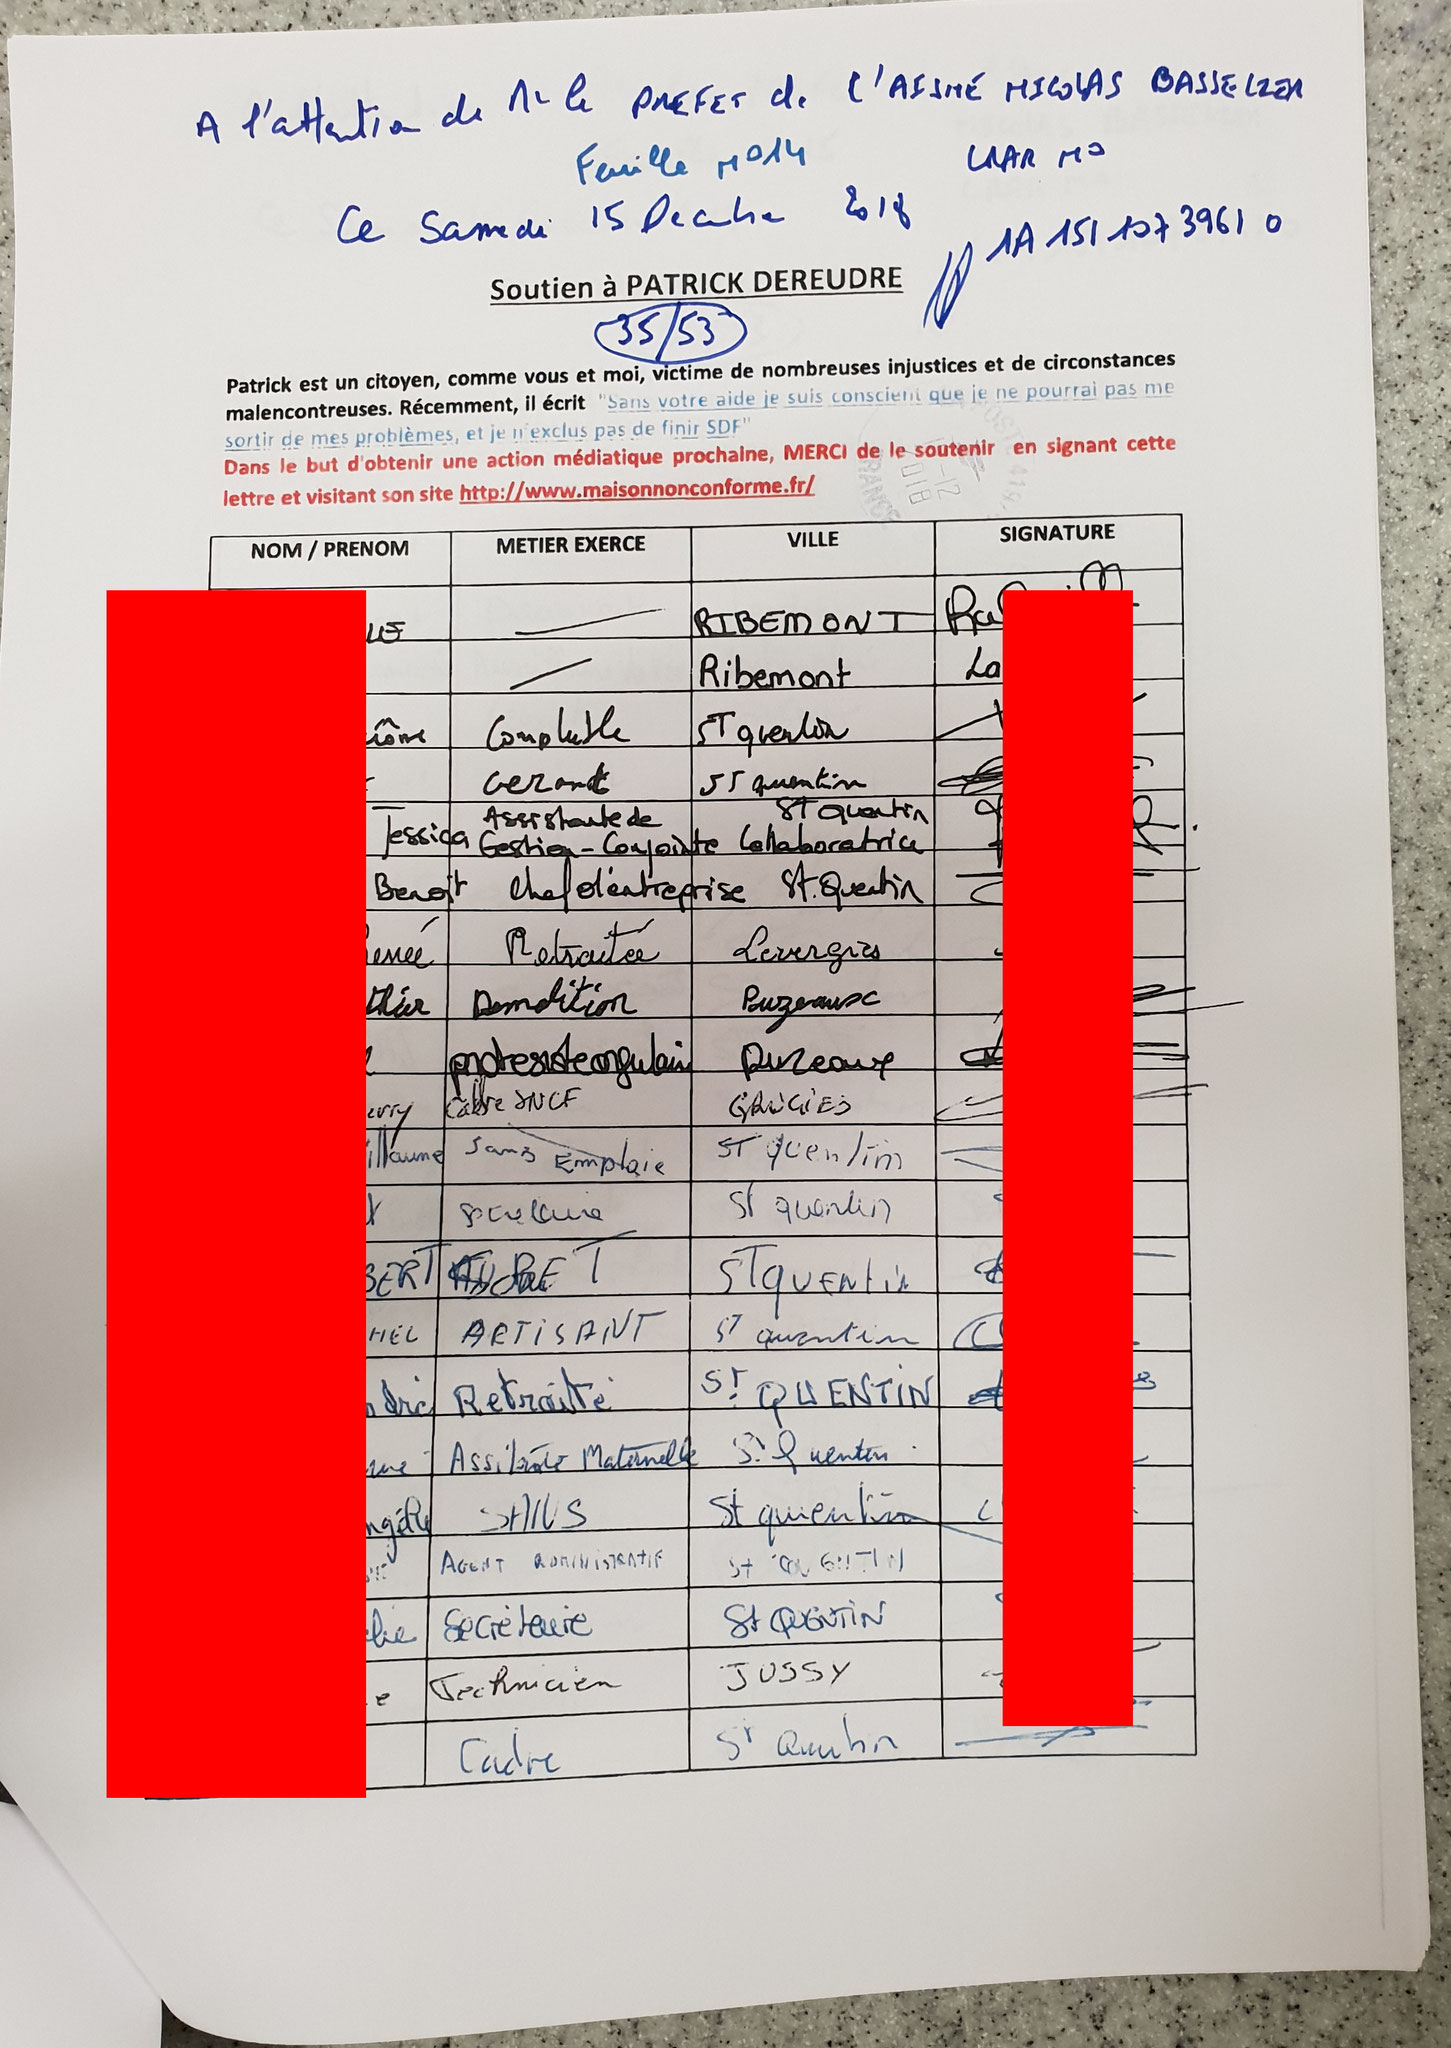 A l'attention de Mr le PREFET de L'AISNE NICOLAS BASSELIER
Feuille N°14 LRAR N°
Ce Samedi 15 Decembre 2018 1A 151 107 3961 0
Soutien à PATRICK DEREUDRE
35/53
Patrick est un citoyen, comme vous et moi, victime de nombreuses injustices et de circonstances
malencontreuses. Récemment, il écrit "Sans votre aide je suis conscient que je ne pourrai pas me
sortir de mes problèmes, et je n'exclus pas de finir SDF"
Dans le but d'obtenir une action médiatique prochaine, MERCI de le soutenir en signant cette
lettre et visitant son site http://www.maisonnonconforme.fr/
NOM / PRENOM METIER EXERCE VILLE SIGNATURE
RIBEMONT
Ribemont La
Comptable ST quentin
Gerant ST quentin
Jessica Assistante de Gestion - Conjointe Collaboratrice St Quentin
Benoit Chef d'entreprise St. Quentin
Retraitée Levergies
Demolition Puzeaux
Puzeaux
Cadre SNCF
illaume Sans Emploie ST quentin
Secretaire St quentin
BERT ST QUENTIN
HEL ARTISANT ST quentin
Retraité St QUENTIN
Assistante Maternelle St Quentin
SANS St quientin
AGENT ADMINISTRATIF St QUENTIN
Secrétaire St QUENTIN
Technicien JUSSY
Cadre St Quentin